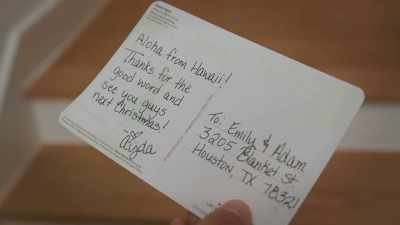 Aloha from Hawaii!
Thanks for the
good word and
see you guys
next Christmas!
To: Emily & Adam
3205 Blanket St
Houston, TX 78321